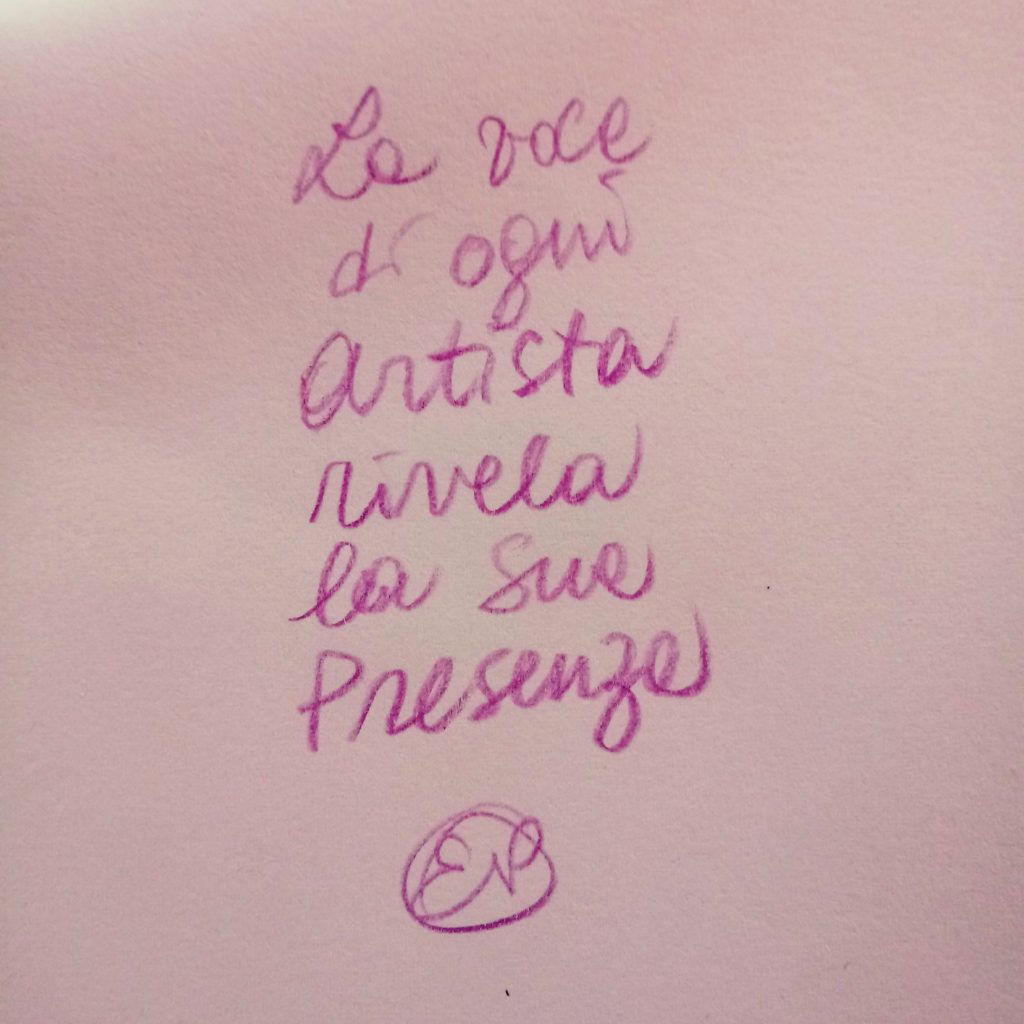 La voce
di ogni
Artista
rivela
la Sua
Presenza